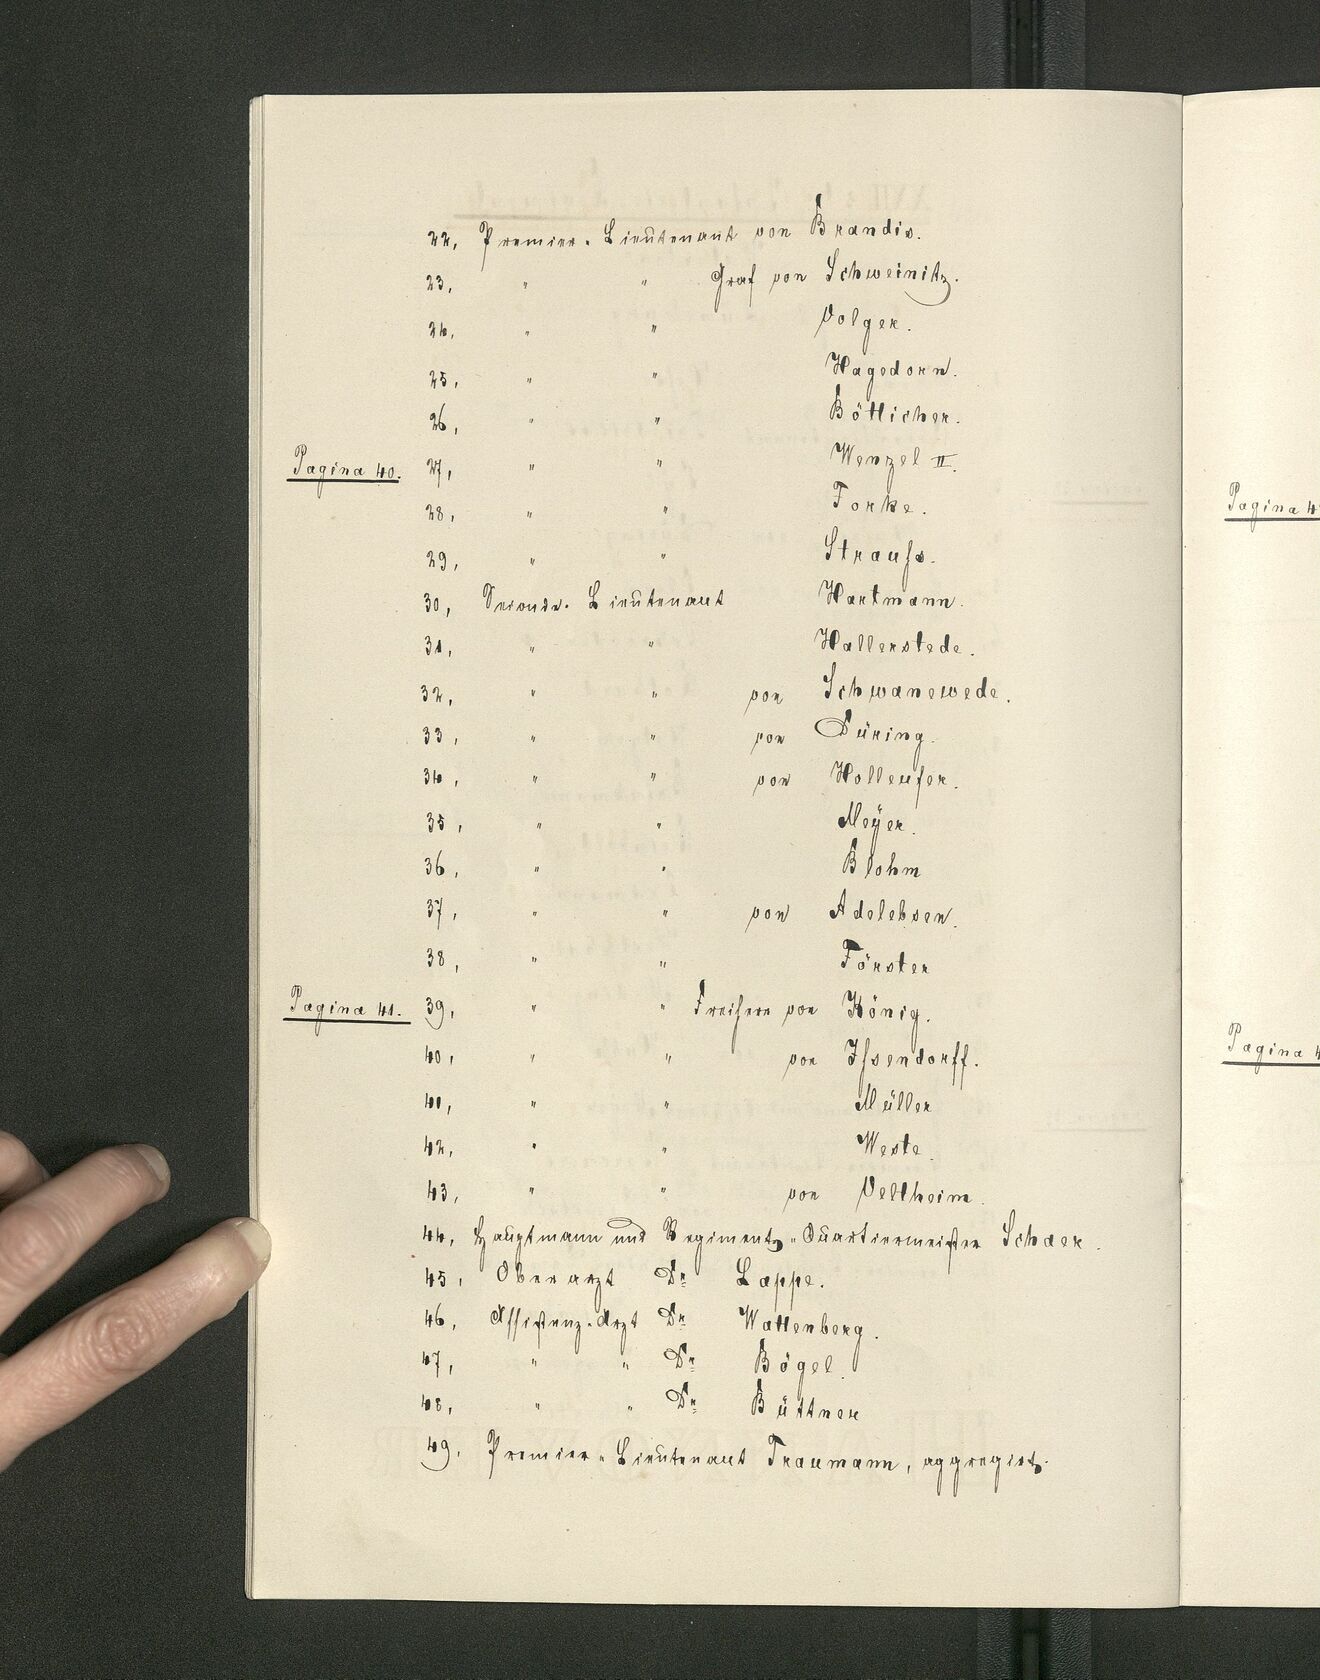 22, Premier-Lieutenant von Brandis.
23, " " Graf von Schweinitz.
24, " " Volger.
25, " " Hagedorn.
26, " " Bötticher.
Pagina 40. 27, " " Wenzel II.
28, " " Forke.
29, " " Strauſs.
30, Seconde-Lieutenant Hartmann.
31, " " Hallerstede.
32, " " von Schwanewede.
33, " " von Düring.
34, " " von Holleufer.
35, " " Meÿer.
36, " " Blohm
37, " " von Adelebsen.
38, " " Förster
Pagina 41. 39, " " Freiherr von König.
40, " " von Iſsendorff.
41, " " Müller
42, " " Weste.
43, " " von Veltheim.
44, Hauptmann und Regiments-Quartiermeister Schaer.
45, Oberarzt Dr Lappe.
46, Aſsistenz-Arzt Dr Wattenberg.
47, " " Dr Bögel.
48, " " Dr Büttner
49. Premier-Lieutenant Traumann, aggregirt.
Pagina
Pagina